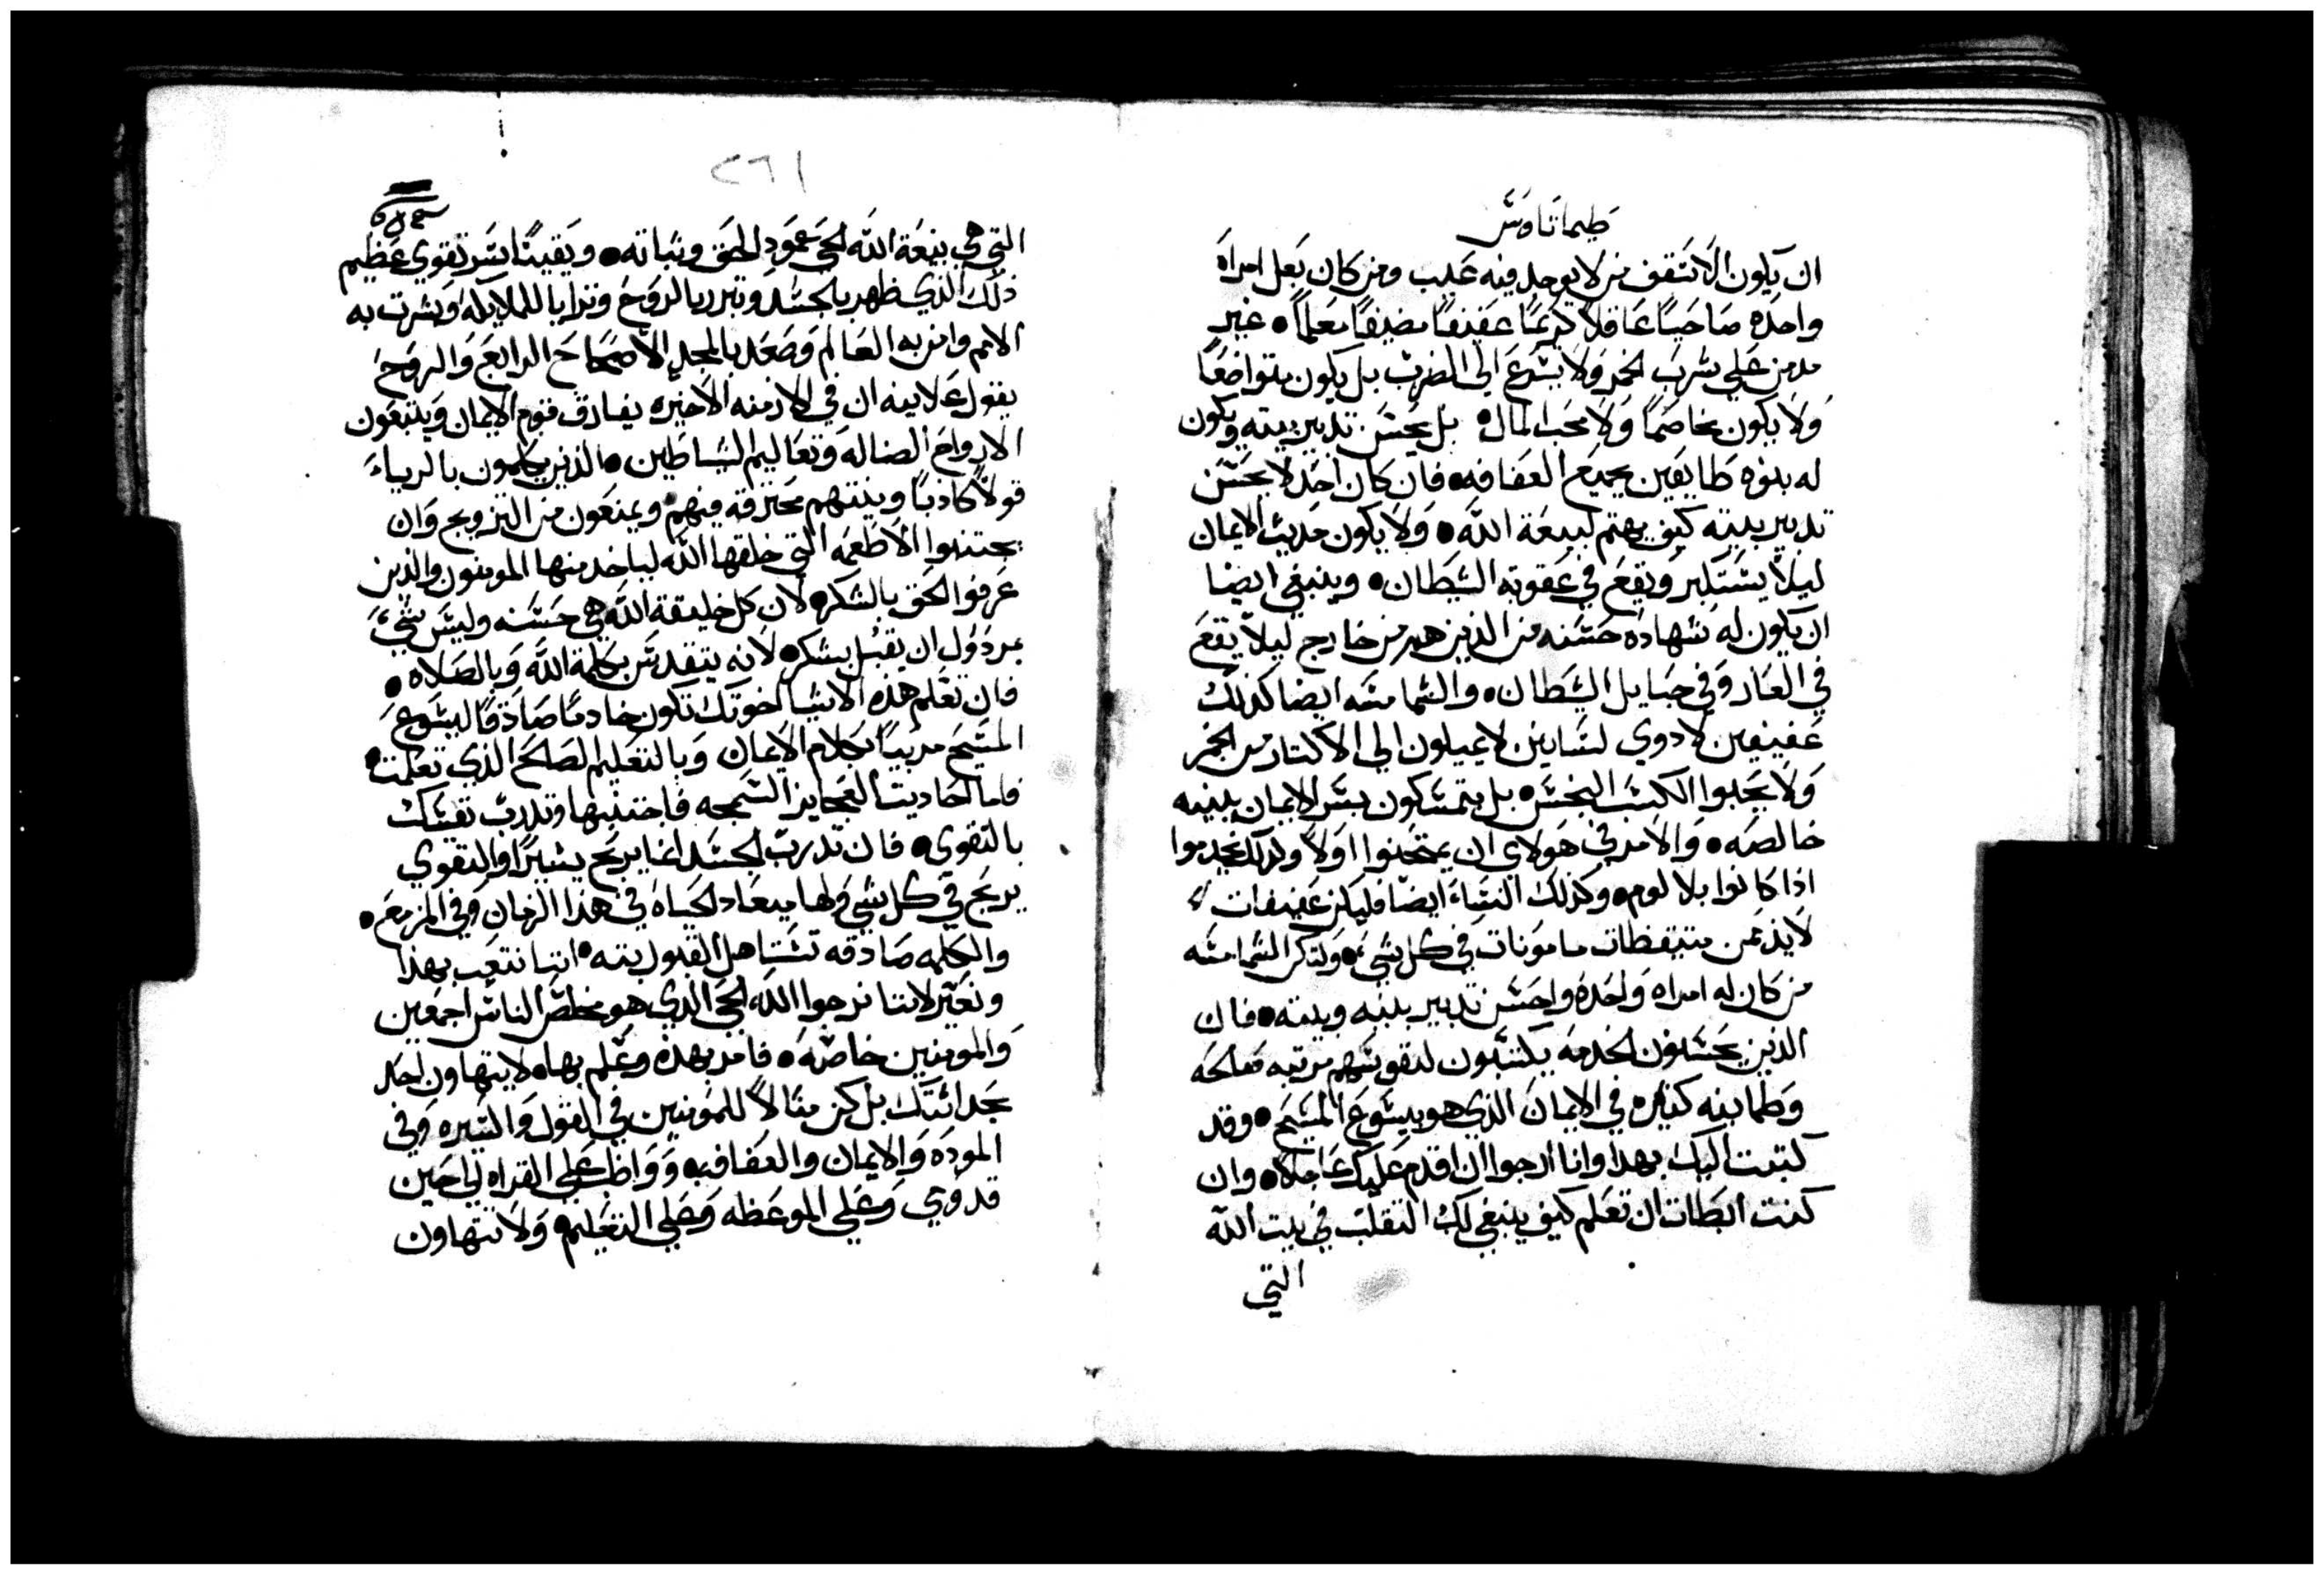 طيماتاوس
ان يكون الاسقف من لا يوجد فيه عيب ومن كان بعل امراه
واحده صاحيًا عاقلاً كريمًا عفيفًا مضيفًا معلماً • غير
مدمن على شرب الخمر ولا يسرع الى الضرب بل يكون متواضعًا
ولا يكون مخاصمًا ولا محب المال • بل يحسن تدبير بيته ويكون
له بنوه طايعين بجميع العفافه • فان كان احد لا يحسن
تدبير بيته كيف يهتم لبيعة الله • ولا يكون حديث الايمان
ليلا يستكبر ويقع في عقوبة الشيطان • وينبغي ايضا
ان يكون له شهاده حسنه من الذين هم من خارج ليلا يقع
في العار وفي حبايل الشيطان • والشمامسه ايضا كذلك
عفيفين لا دوي لسانين لا يميلون الى الاكتار من الخمر
ولا يحبوا الكسب النجس • بل يتمسكون بسر الايمان بنيه
خالصه • والامر في هولاي ان يمتحنوا اولاً وكذلك يخدموا
اذا كانوا بلا لوم • وكذلك النساء ايضا فليكن عفيفات
لا يذممن متيقظات مامونات في كل شيء • ولتكن الشمامسه
من كان له امراه واحده واحسن تدبير بنيه وبيته • فان
الذين يحسنون الخدمه يكتسبون لنفوسهم مرتبه صالحه
وطمانينه كثيره في الايمان الذي هو بيسوع المسيح • وقد
كتبت اليك بهذا وانا ارجوا ان اقدم عليك عاجلاً • وان
كنت ابطات ان تعلم كيف ينبغي لك التقلب في بيت الله
التي
٢٦١
التي هي بيعة الله الحي عمود الحق وثباته • ويقينًا ان سر تقوي عظيم
ذلك الذي ظهر بالجسد وتبرر بالروح وترايا للملايكه وبشرت به
الامم وامن به العالم وصعد بالمجد الاصحاح الرابع والروح
يقول علانيه ان في الازمنه الاخيره يفارق قوم الايمان ويتبعون
الارواح الضاله وتعاليم الشياطين • الذين يتكلمون بالرياء
قولاً كاذبًا ونيتهم محترقه فيهم ويمنعون من التزويج وان
يجتنبوا الاطعمه التي خلقها الله لياخد منها المومنون والذين
عرفوا الحق بالشكر • لان كل خليقة الله هي حسنه وليس شيء
بمردول ان يقبل بشكر • لانه يتقدس بكلمة الله وبالصلاه •
فان تعلم هذه الاشيا اخوتك تكون خادمًا صادقًا ليسوع
المسيح مربيًا بكلام الايمان وبالتعليم الصالح الذي تعلمت •
فاما احاديت العجايز السمجه فاجتنبها وتدرب نفسك
بالتقوي • فان تدرب الجسد انما يربح يسيرًا والتقوي
تربح في كل شي ولها ميعاد الحياه في هذا الزمان وفي المزمع •
والكلمه صادقه تستاهل القبول بته • اننا نتعب بهذا
ونعير لاننا نرجوا الله الحي الذي هو مخلص الناس اجمعين
والمومنين خاصه • فامر بهذه وعلم بها • لا يتهاون احد
بحداثتك بل كن مثالاً للمومنين في القول والسيره وفي
الموده والايمان والعفافه • وواظب على القراه الى حين
قدومي وعلى الموعظه وعلى التعليم • ولا تتهاون